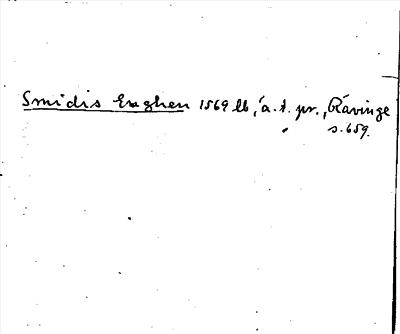 Smidis Enghen 1569 lb, a. t. pr., Rävinge
s. 659.